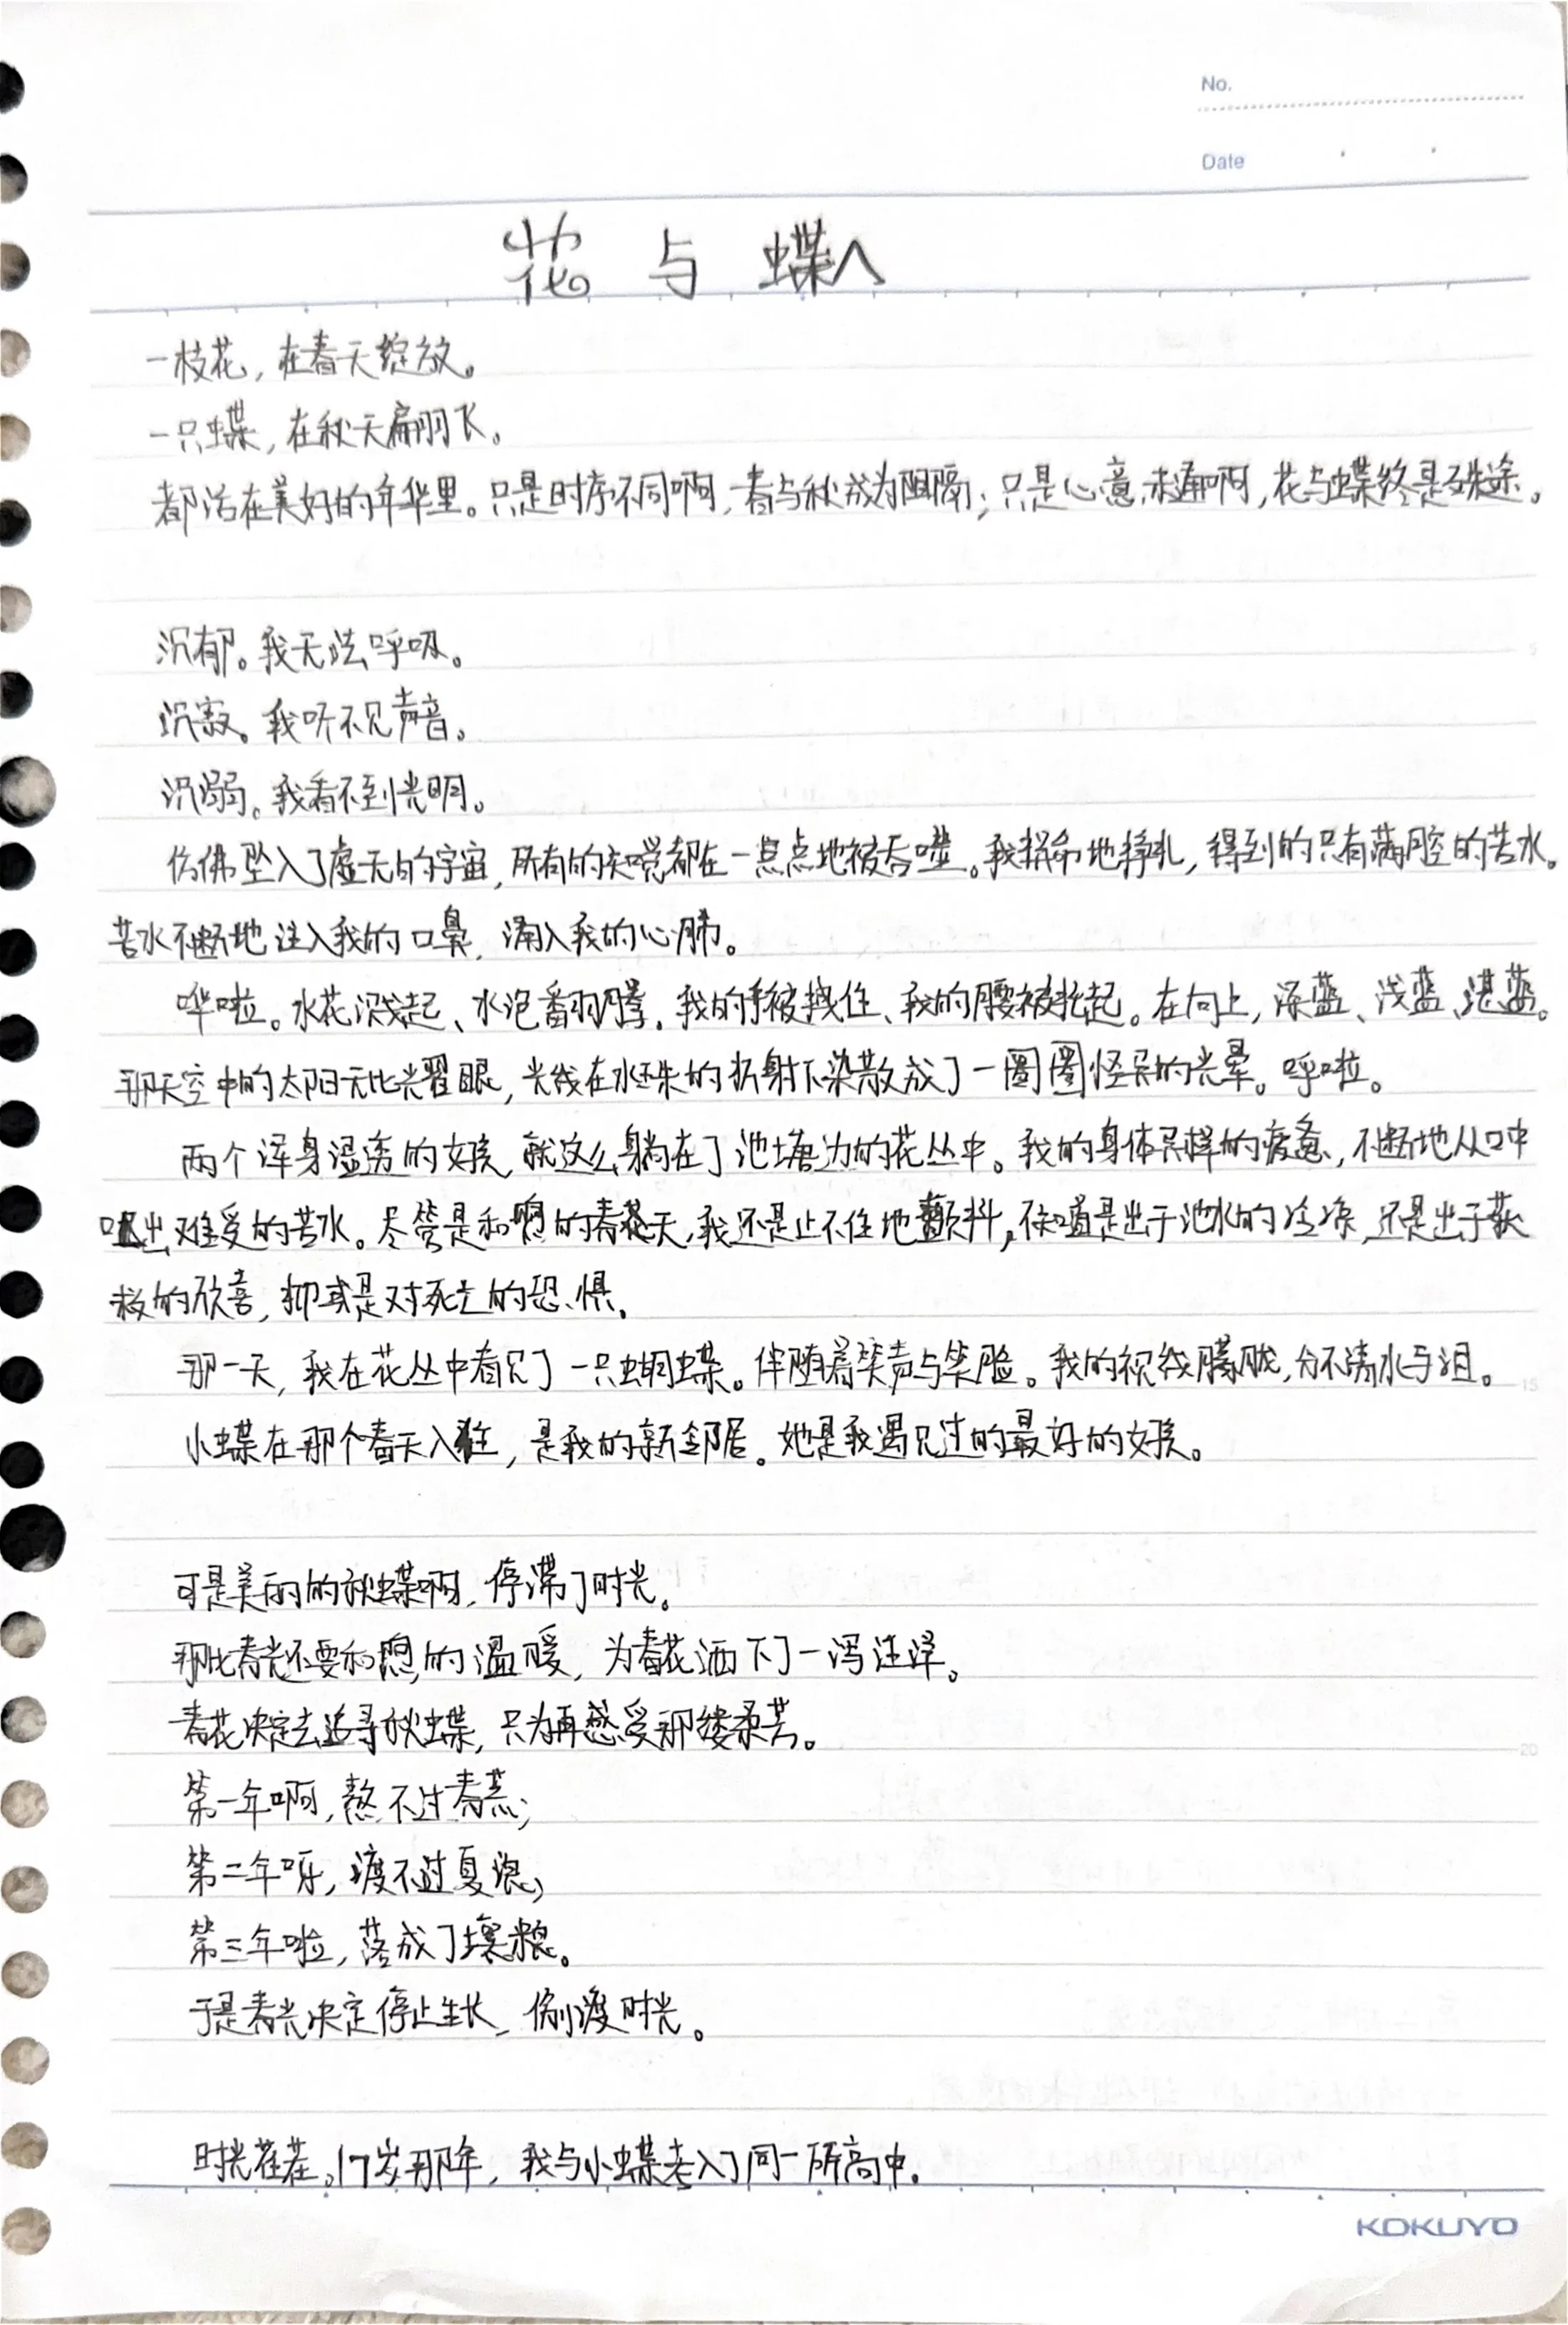 No.
Date
花 与 蝶
一枝花，在春天绽放。
一只蝶，在秋天翩飞。
都活在美好的年华里。只是时序不同啊，春与秋成为阻隔；只是心意未通啊，花与蝶终是殊途。
沉郁。我无法呼吸。
沉寂。我听不见声音。
沉溺。我看不到光明。
仿佛坠入了虚无的宇宙，所有的知觉都在一点点地被吞噬。我拼命地挣扎，得到的只有满腔的苦水。
苦水不断地注入我的口鼻，涌入我的心肺。
哗啦。水花溅起、水泡翻腾。我的手被拽住、我的腰被托起。在向上，深蓝、浅蓝、湛蓝。
那天空中的太阳无比光耀眼，光线在水珠的折射下染散成了一圈圈怪异的光晕。呼啦。
两个浑身湿透的女孩，就这么躺在了池塘边的花丛中。我的身体异样的疲惫，不断地从口中
呕出难受的苦水。尽管是和煦的春天，我还是止不住地颤抖，不知道是出于池水的冷冻，还是出于获
救的欣喜，抑或是对死亡的恐惧。
那一天，我在花丛中看见了一只蝴蝶。伴随着笑声与笑脸。我的视线朦胧，分不清水与泪。
小蝶在那个春天入住，是我的新邻居。她是我遇见过的最好的女孩。
可是美丽的秋蝶啊，停滞了时光。
那比春光还要和煦的温暖，为春花洒下了一泻汪洋。
春花决定去追寻秋蝶，只为再感受那缕柔芳。
第一年啊，熬不过春荒；
第二年呀，渡不过夏浪；
第三年啦，落成了壤粮。
于是春光决定停止生长，偷渡时光。
时光荏苒。17岁那年，我与小蝶考入了同一所高中。
KOKUYO